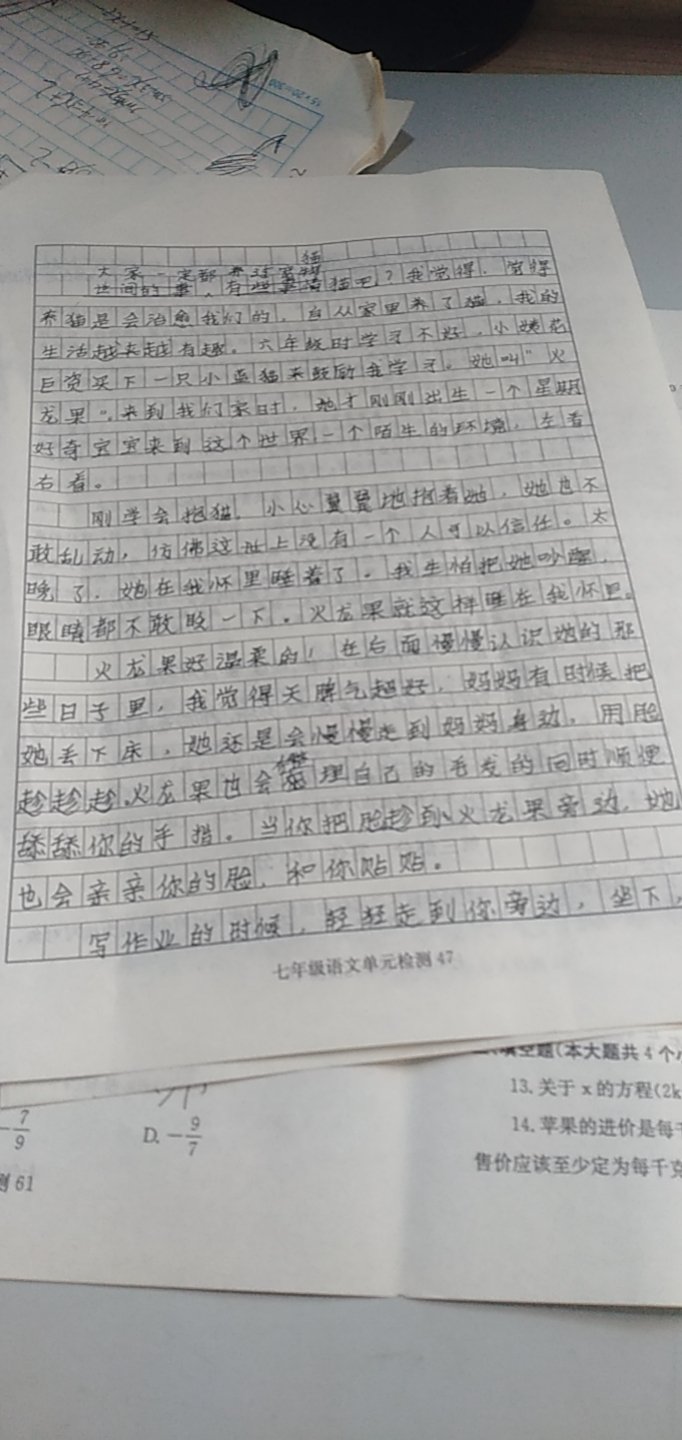 15×20=300
猫
大家一定都养过宠物
世间的事,有些事情猫吧?我觉得,觉得
养猫是会治愈我们的,自从家里养了猫,我的
生活越来越有趣。六年级时学习不好,小姨花
巨资买下一只小蓝猫来鼓励我学习。她叫"火
龙果"。来到我们家时,她才刚刚出生一个星期
好奇宝宝来到这个世界一个陌生的环境,左看
右看。
刚学会抱猫,小心翼翼地抱着她,她也不
敢乱动,仿佛这世上没有一个人可以信任。太
晚了,她在我怀里睡着了。我生怕把她吵醒,
眼睛都不敢眨一下。火龙果就这样睡在我怀里。
火龙果好温柔的!在后面慢慢认识她的那
些日子里,我觉得天脾气超好,妈妈有时候把
她丢下床,她还是会慢慢走到妈妈身边,用脸
趁趁趁。火龙果也会整理自己的毛发的同时顺便
舔舔你的手指。当你把脸趁到火龙果旁边,她
也会亲亲你的脸,和你贴贴。
写作业的时候,轻轻走到你旁边,坐下,
七年级语文单元检测 47
填空题(本大题共 4 个
13. 关于 x 的方程(2k
14. 苹果的进价是每千
售价应该至少定为每千克
-7/9
D. -9/7
测 61